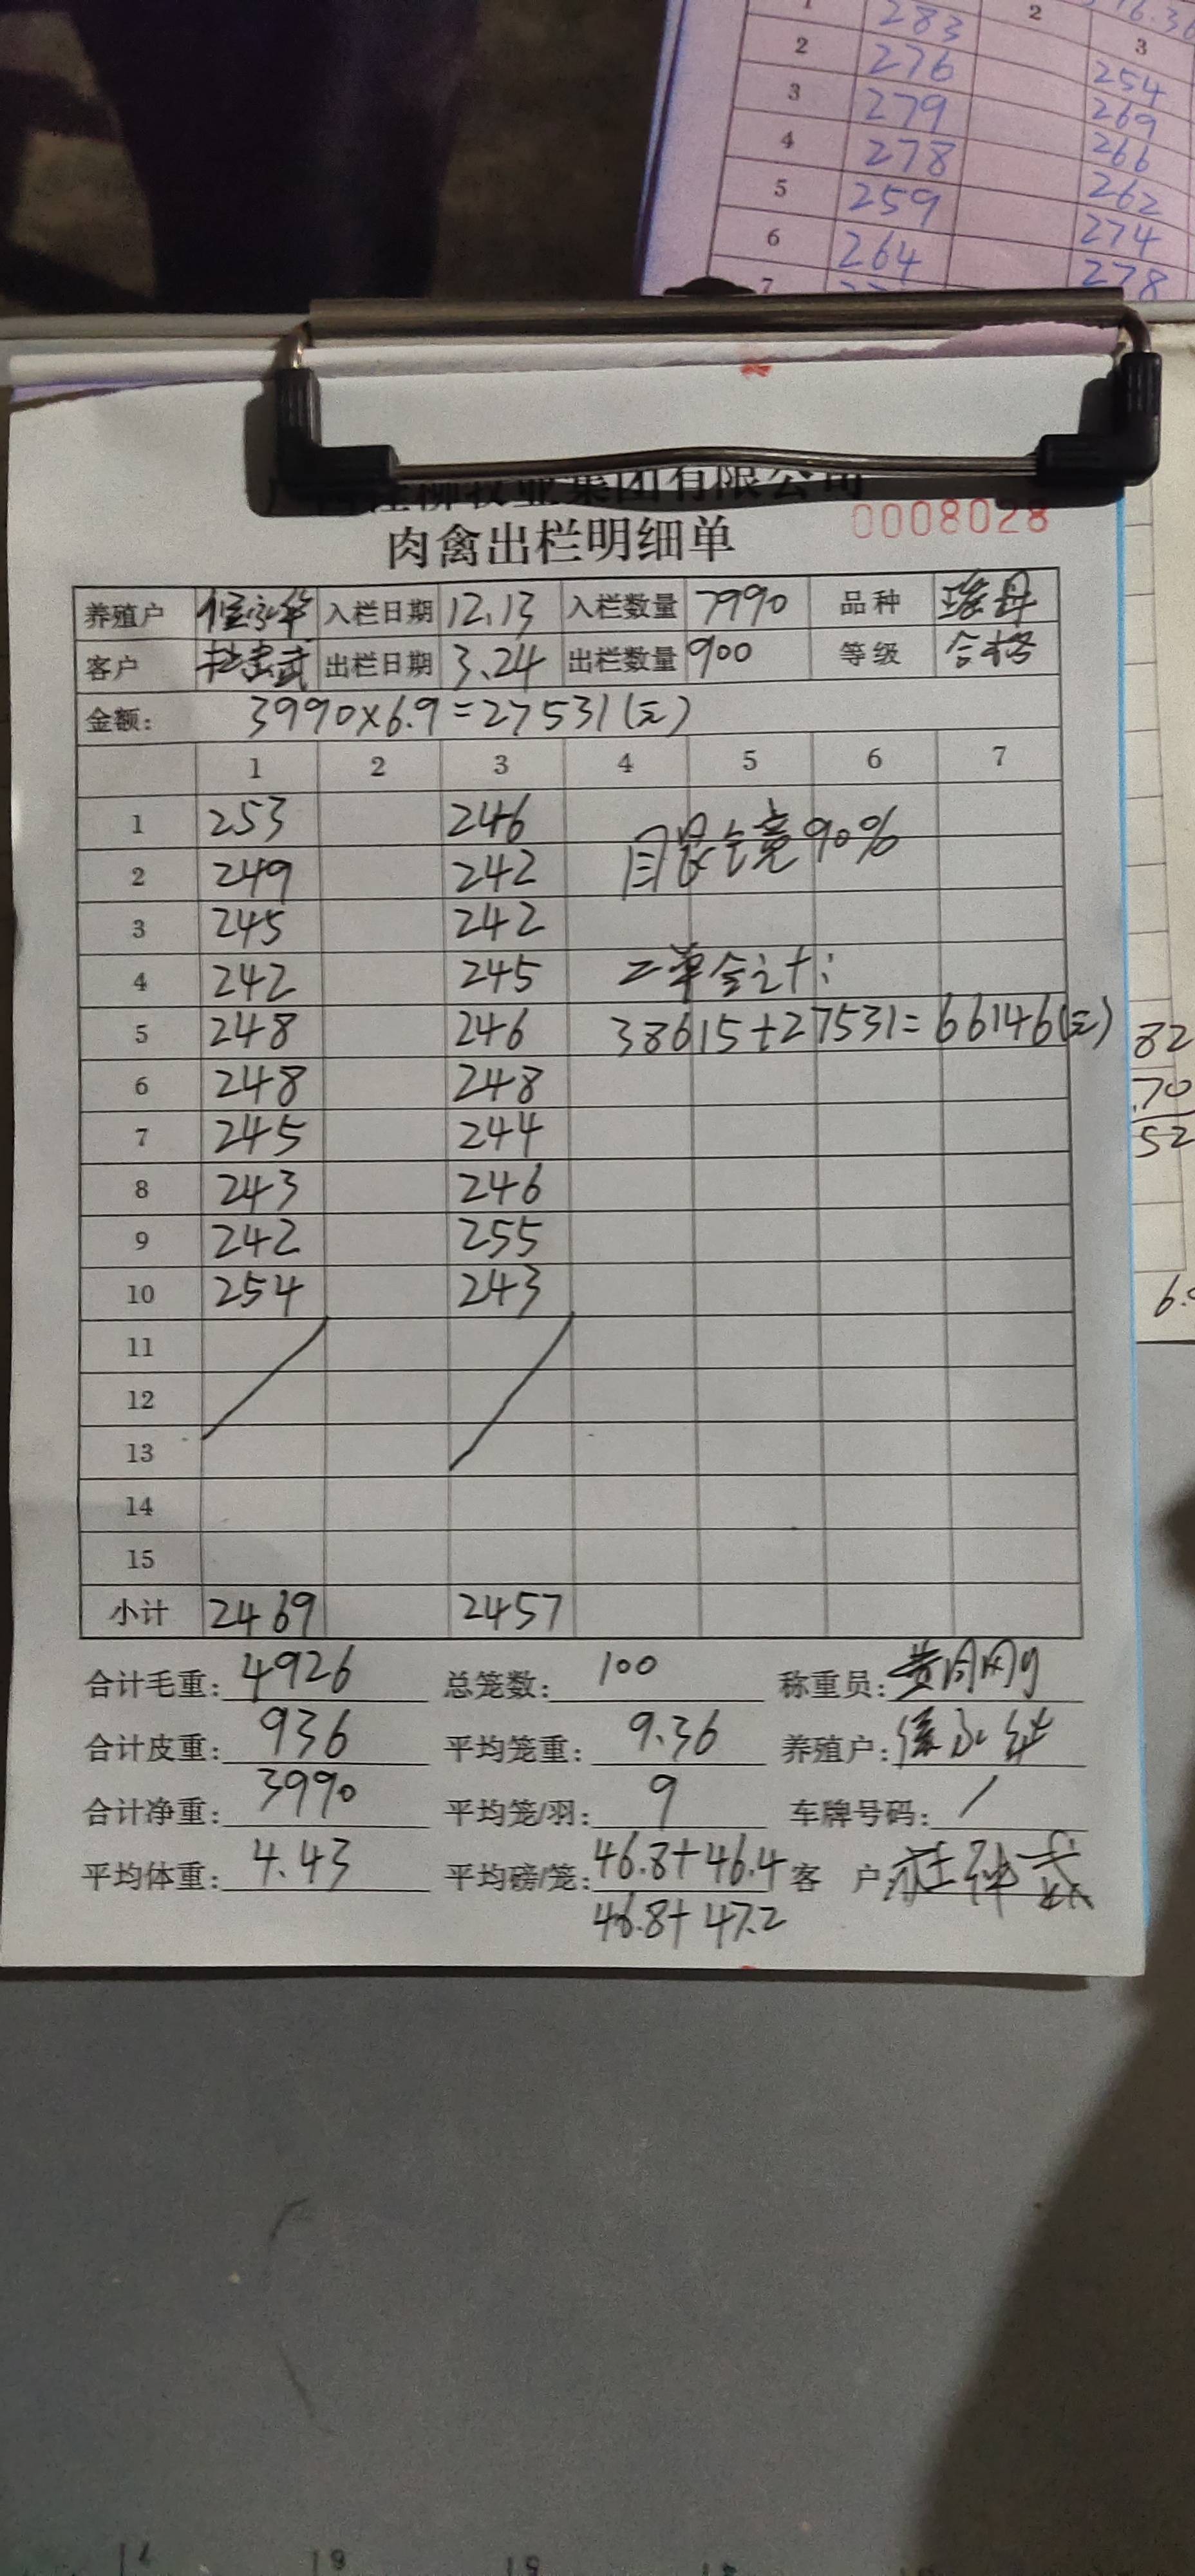 1 283 2
2 276 3
3 279 254
4 278 269
5 259 266
6 264 262
7 274
278
牧业集团有限公司
肉禽出栏明细单 0008028
养殖户 入栏日期 12.13 入栏数量 7990 品种
客户 出栏日期 3.24 出栏数量 900 等级 合格
金额: 3990×6.9=27531(元)
1 2 3 4 5 6 7
1 253 246
90%
2 249 242
3 245 242
4 242 245 二单合计:
5 248 246 38615+27531=66146(元)
6 248 248
7 245 244
8 243 246
9 242 255
10 254 243
11
12
13
14
15
小计 2469 2457
合计毛重: 4926 总笼数: 100 称重员:
合计皮重: 936 平均笼重: 9.36 养殖户:
合计净重: 3990 平均笼/羽: 9 车牌号码: /
平均体重: 4.43 平均磅/笼: 46.8+46.4 客 户
46.8+47.2
82
.70
52